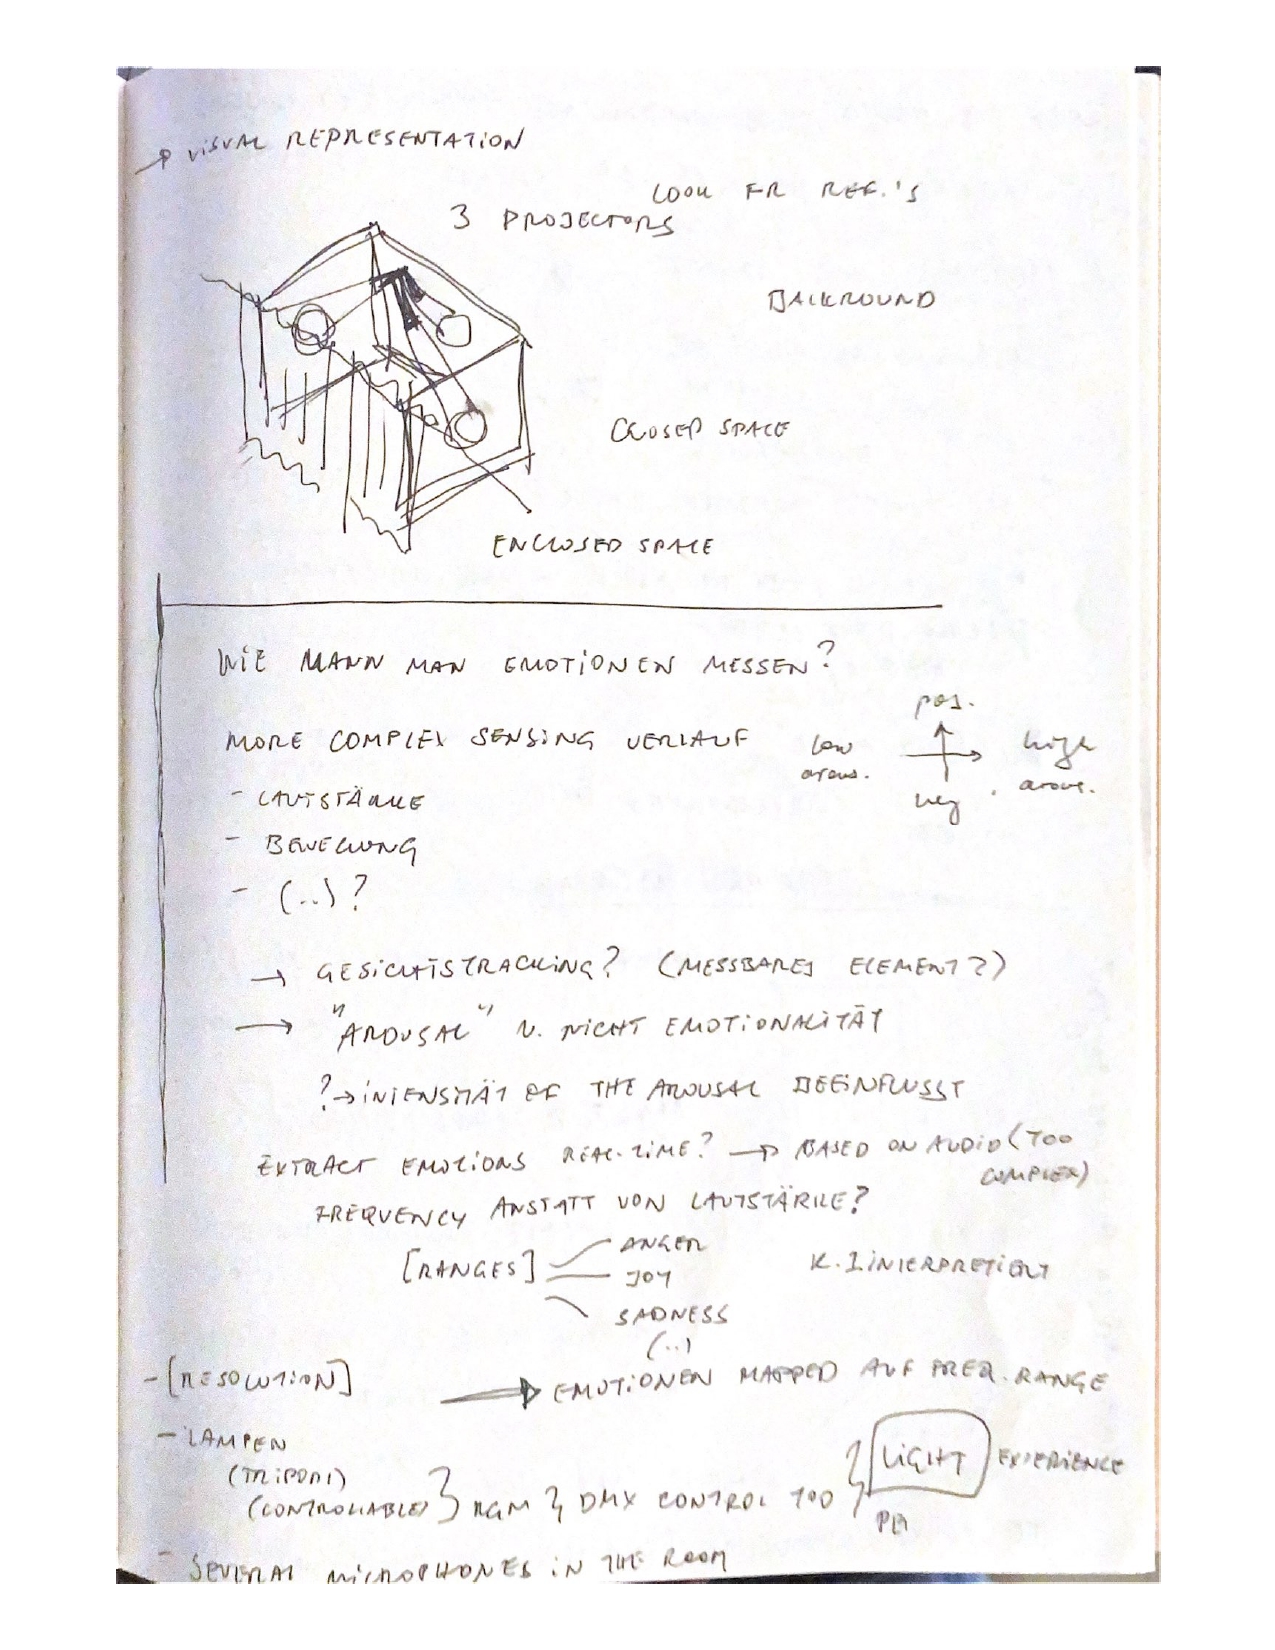 → VISUAL REPRESENTATION
LOOK FR REF.'S
3 PROJECTORS
BACKROUND
CLOSED SPACE
ENCLOSED SPACE
WIE KANN MAN EMOTIONEN MESSEN?
MORE COMPLEX SENSING VERLAUF
pos.
low arous.
high arous.
neg.
- LAUTSTÄRKE
- BEWEGUNG
- (..)?
→ GESICHTSTRACKING? (MESSBARES ELEMENT?)
→ "AROUSAL" U. NICHT EMOTIONALITÄT
?→ INTENSITÄT OF THE AROUSAL BEEINFLUSST
EXTRACT EMOTIONS REAL-TIME? → BASED ON AUDIO (TOO
COMPLEX)
FREQUENCY ANSTATT VON LAUTSTÄRKE?
[RANGES]
ANGER
JOY
SADNESS
(..)
K.I INTERPRETIERT
- [RESOLUTION]
→ EMOTIONEN MAPPED AUF FREQ. RANGE
- LAMPEN
(TRIPODI)
(CONTROLLABLE) } } DMX CONTROL TOO } LIGHT EXPERIENCE
- SEVERAL MICROPHONES IN THE ROOM